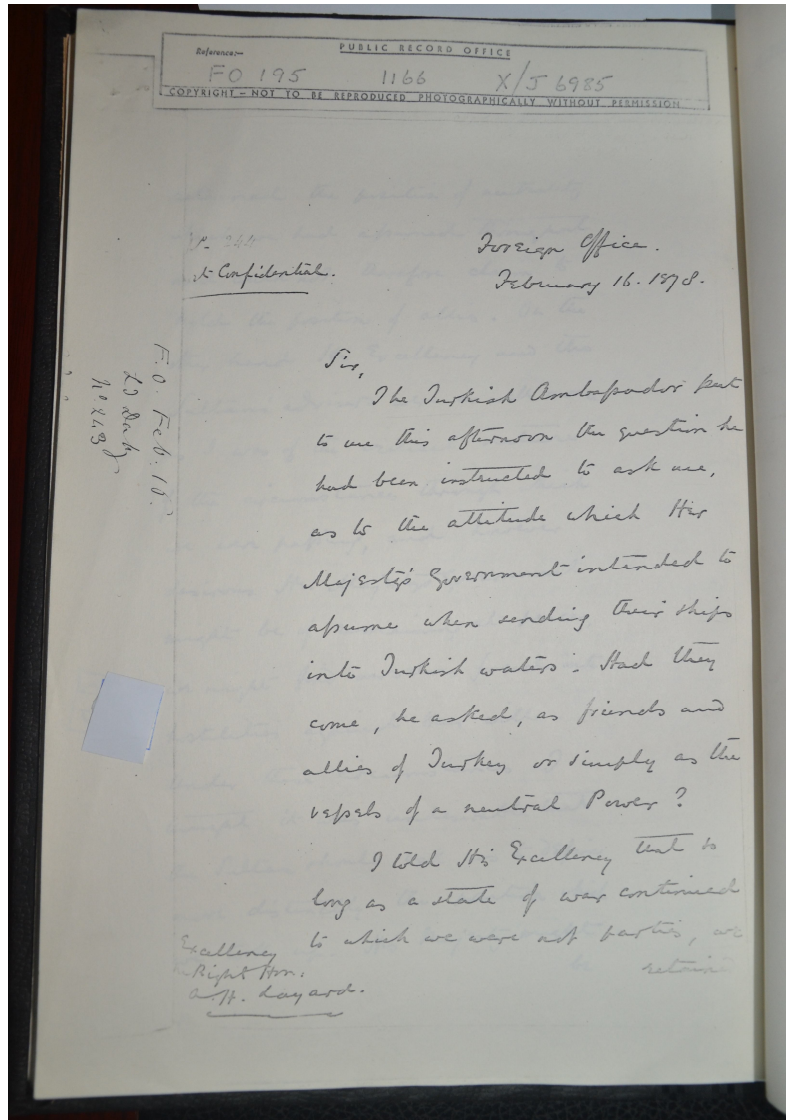 Reference:-
PUBLIC RECORD OFFICE
FO 195 1166 X/J 6985
COPYRIGHT - NOT TO BE REPRODUCED PHOTOGRAPHICALLY WITHOUT PERMISSION
244
Confidential.
Foreign Office.
February 16. 1878.
F.O. Feb.
Ld Derby
No. 243
Sir,
The Turkish Ambassador put
to me this afternoon the question he
had been instructed to ask me,
as to the attitude which Her
Majesty's Government intended to
assume when sending their ships
into Turkish waters. Had they
come, he asked, as friends and
allies of Turkey or simply as the
vessels of a neutral Power?
I told His Excellency that so
long as a state of war continued
to which we were not parties, we
retain
Excellency
Right Hon.
A. H. Layard.